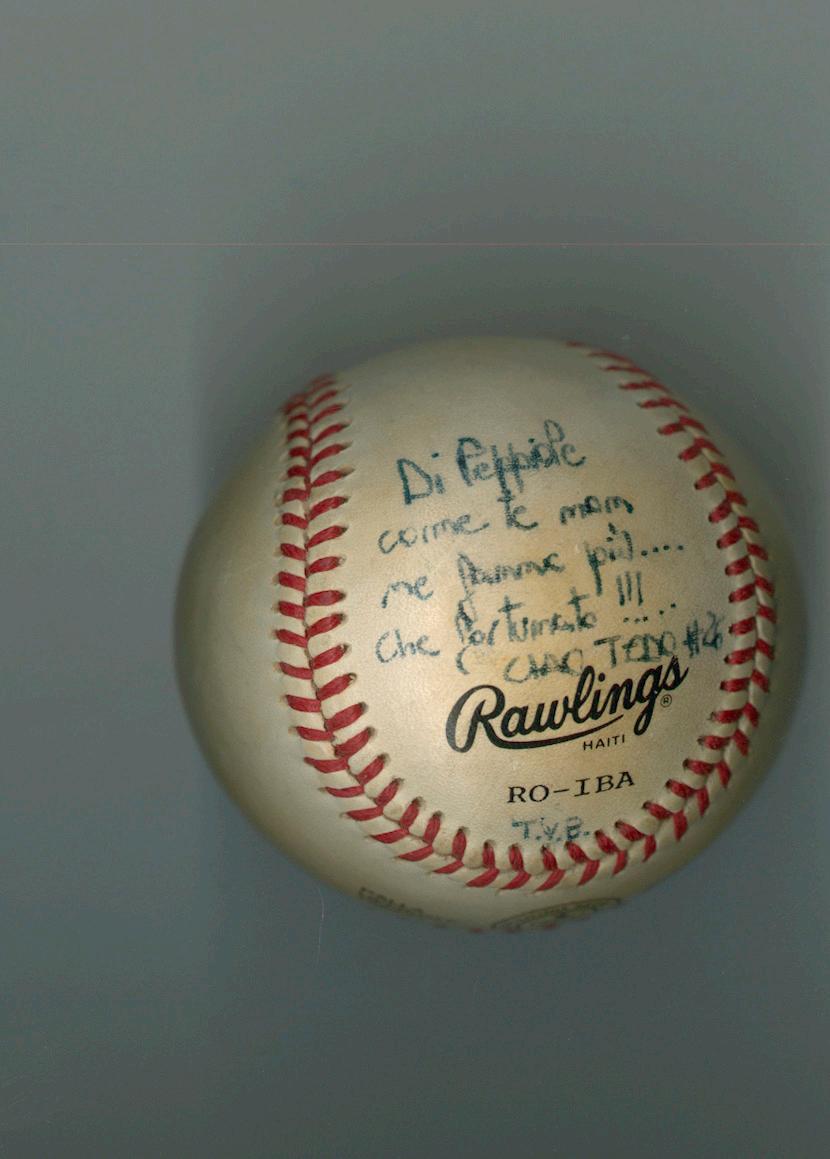 Di Peppiole
come te mom
ne fanno più....
Che fortunato !!! .....
CIAO TEDO #26
Rawlings®
HAITI
RO-IBA
T.V.B.